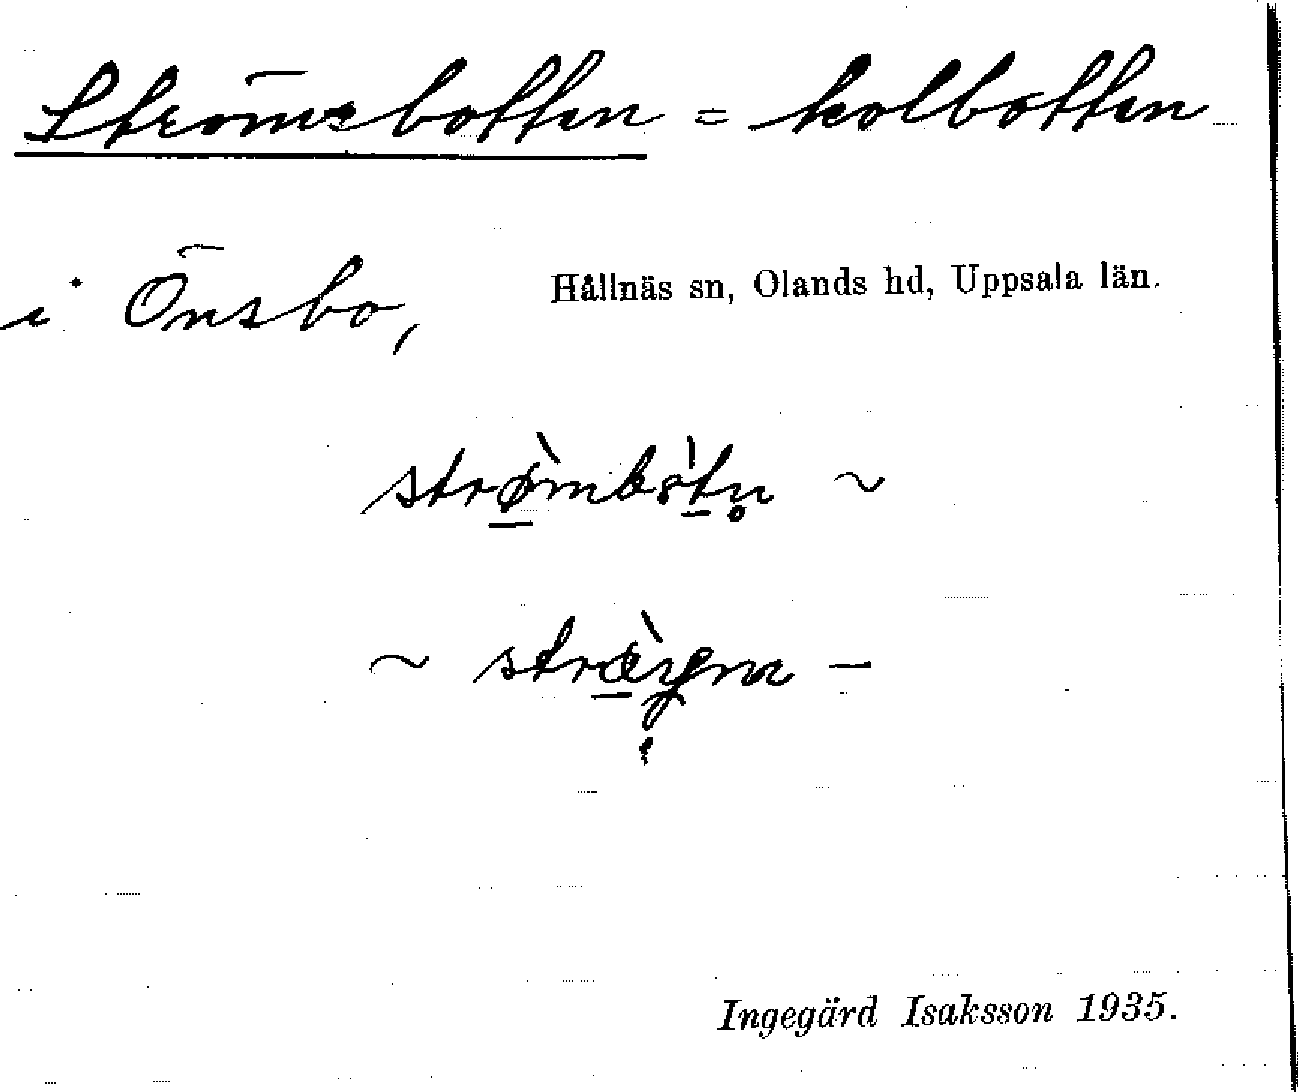 Strömsbotten = kolbotten
i Önsbo, Hållnäs sn, Olands hd, Uppsala län.
strø̀mbòtn̥ ~
~ –
Ingegärd Isaksson 1935.